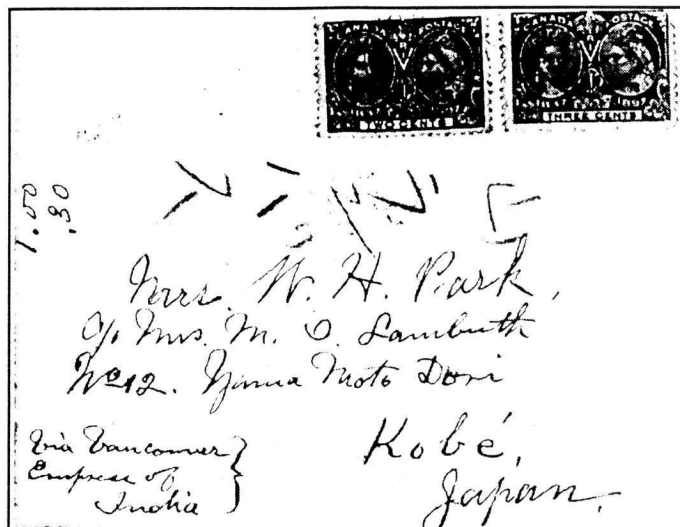 CANADA POSTAGE
V
TWO CENTS
CANADA POSTAGE
V
THREE CENTS
1.00
.30
Mrs. W. H. Park,
c/o Mrs. M. I. Lambuth
No 12. Yama Moto Dori
Kobé,
Japan.
Via Vancouver
Empress of
India